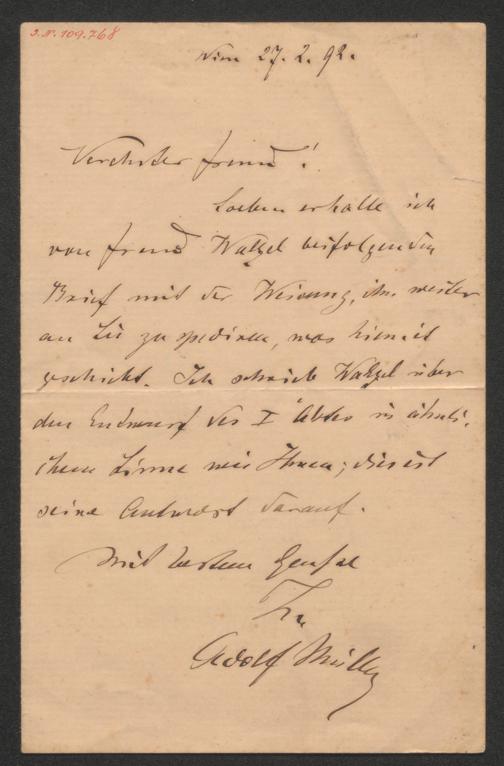 J. N. 109.768
Wien 27. 2. 92.
Verehrter Freund!
Soeben erhalte ich
von Freund Walzel beifolgenden
Brief mit der Weisung, ihn weiter
an Sie zu spediren, was hiemit
geschieht. Ich schrieb Walzel über
den Entwurf des I Aktes in ähnli,
chem Sinne wie Ihnen; dies ist
seine Antwort darauf.
Mit bestem Gruße
Ihr
Adolf Müller